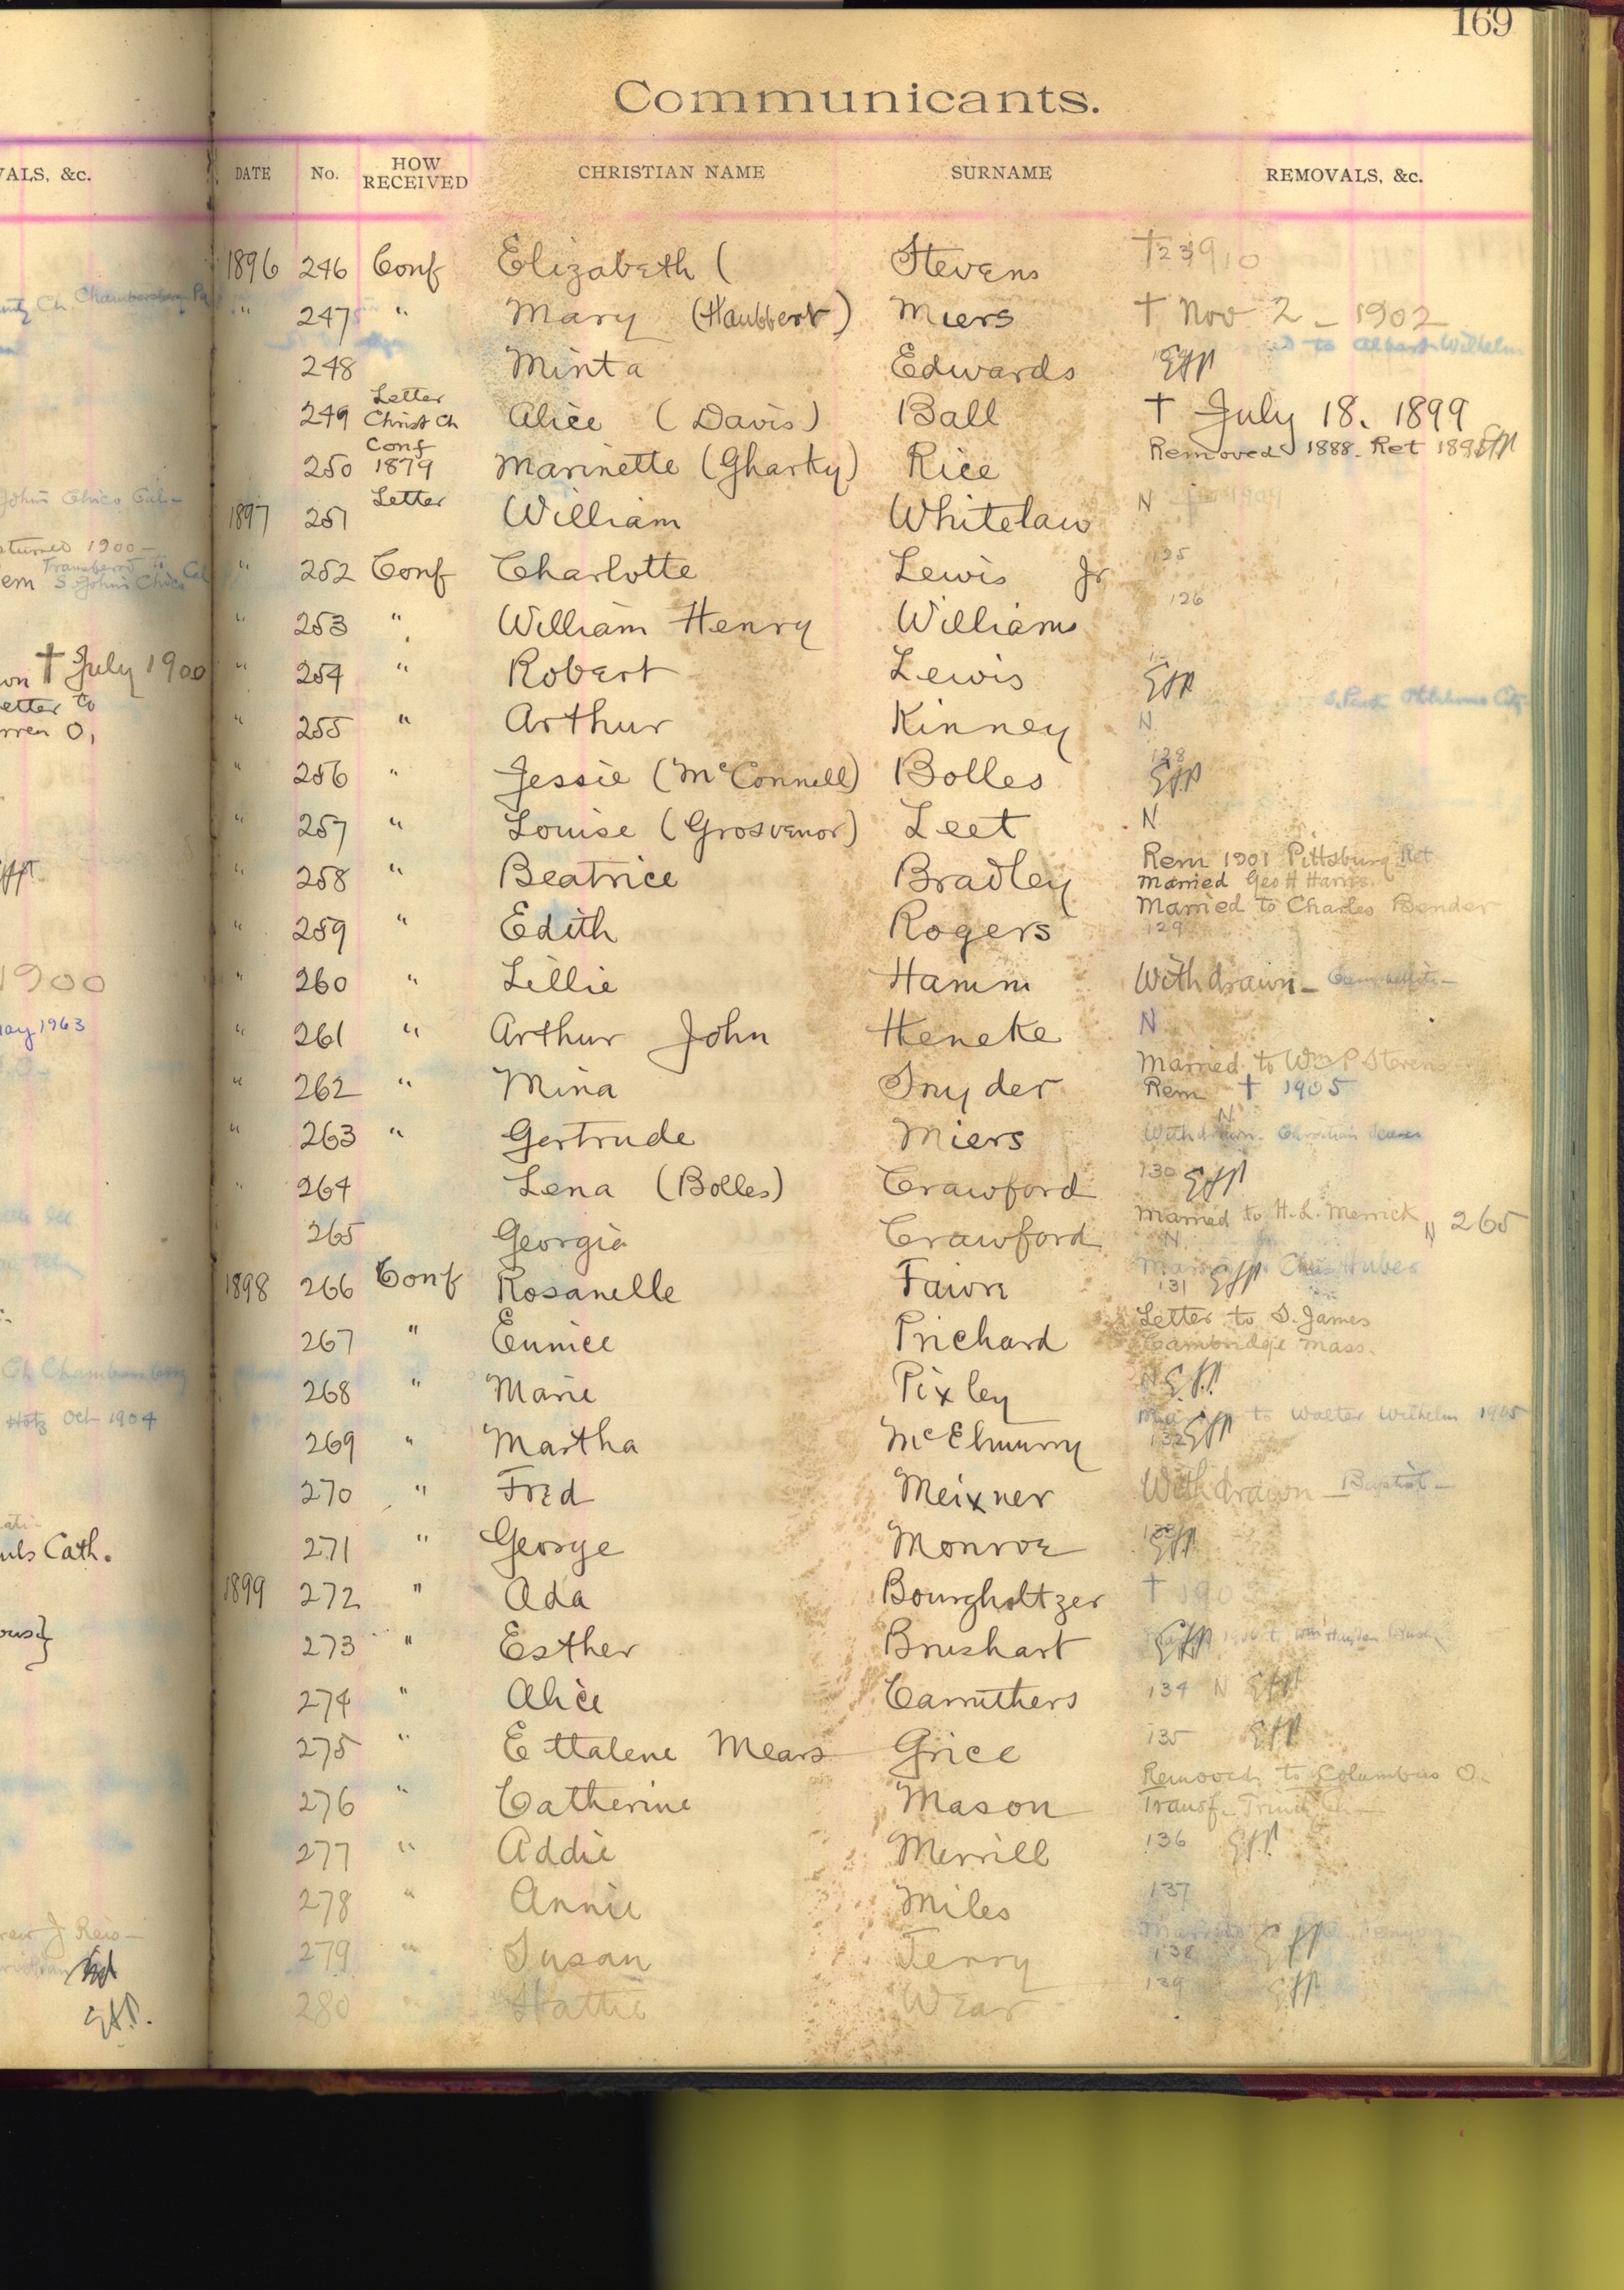 169
Communicants.
VALS, &c. DATE No. HOW RECEIVED CHRISTIAN NAME SURNAME REMOVALS, &c.
1896 246 Conf Elizabeth ( Stevens † 1910
Ch. Chambersburg Pa
" 247 " Mary (Haubbert) Miers † Nov 2 – 1902
to Albert Wilhelm
248 Minta Edwards EHP
249 Letter Christ Ch Alice (Davis) Ball † July 18. 1899
250 Conf 1879 Marinette (Gharky) Rice Removed 1888. Ret 1895 EHP
Johns Chico Cal–
1897 251 Letter William Whitelaw N † 1904
turned 1900 –
Transferred to
em S. Johns Chico Cal
" 252 Conf Charlotte Lewis Jr 125
" 253 " William Henry Williams 126
on † July 1900
" 254 " Robert Lewis EHP
etter to
rren O,
S. Pauls Oklahoma City
" 255 " Arthur Kinney N
" 256 " Jessie (McConnell) Bolles 128 EHP
" 257 " Louise (Grosvenor) Leet N
" 258 " Beatrice Bradley Rem 1901 Pittsburg Ret
Married Geo H Harris
" 259 " Edith Rogers Married to Charles Bender
129
1900
" 260 " Lillie Hamm Withdrawn –
May 1963
" 261 " Arthur John Heneke N
" 262 " Mina Snyder Married to Wm P Stevens
Rem † 1905
" 263 " Gertrude Miers N
Withdrawn. Christian Science
" 264 Lena (Bolles) Crawford 130 EHP
265 Georgia Crawford Married to H. L. Merrick N 265
N
1898 266 Conf Rosanelle Fawn Chas Huber
131 EHP
267 " Eunice Prichard Letter to S. James
Cambridge Mass.
Ch Chambersburg
268 " Marie Pixley N EHP
Hotz Oct 1904
269 " Martha McElmurry to Walter Wilhelm 1905
132 EHP
270 " Fred Meixner Withdrawn – Baptist –
uls Cath.
271 " George Monroe 133 EHP
1899 272 " Ada Bourgholtzer † 190
273 " Esther Brushart EHP
274 " Alice Carruthers 134 N EHP
275 " Ettalene Mears Grice 135 EHP
276 " Catherine Mason Removed to Columbus O.
Transf. Trinity Ch –
277 " Addie Merrill 136 EHP
278 " Annie Miles 137
J Reis –
279 " Susan Terry 138 EHP
280 " Hattie Wear 139 EHP
EHP.